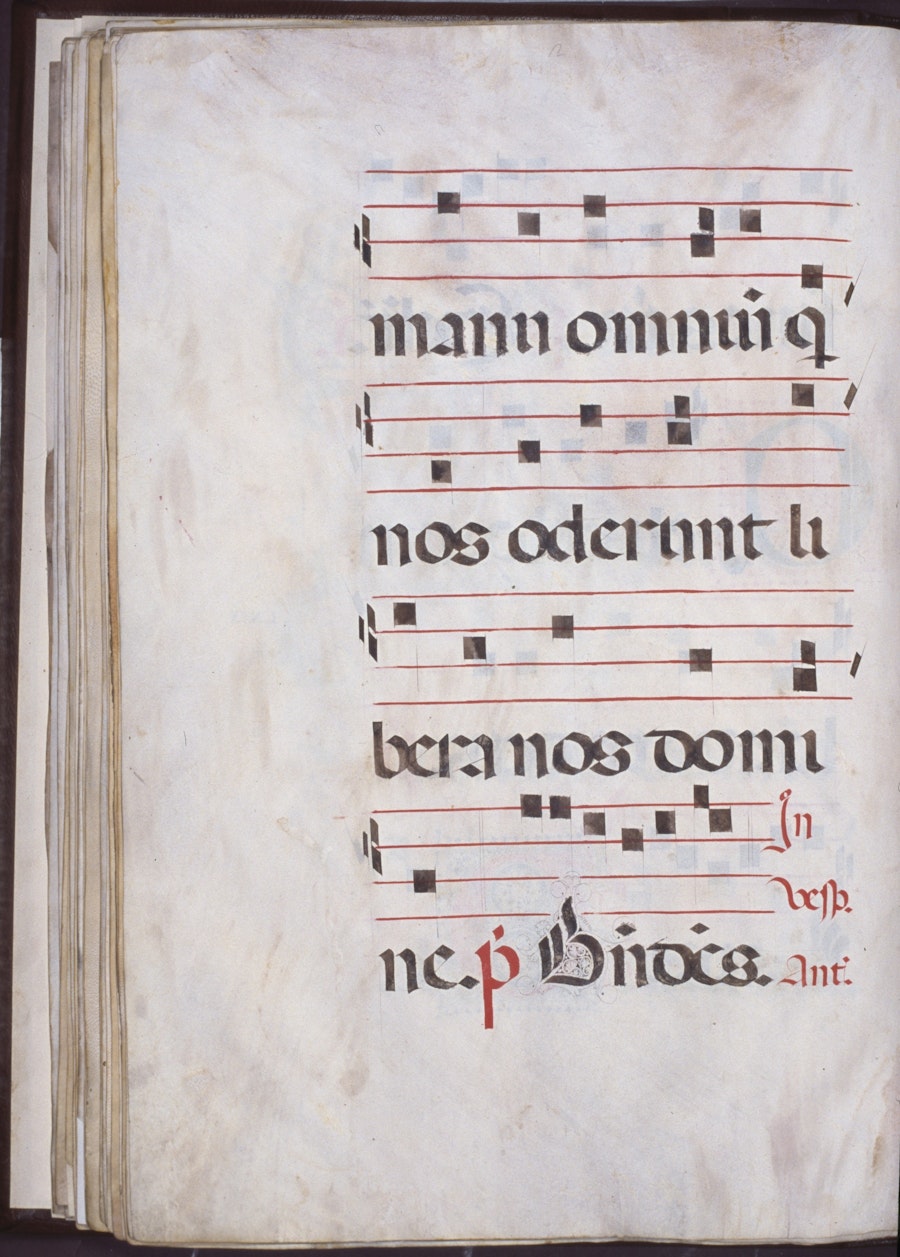 manu omniũ q̃
nos oderunt li
bera nos domi
ne. p̃ Bñdc̃s. In
vesp.
Ant.